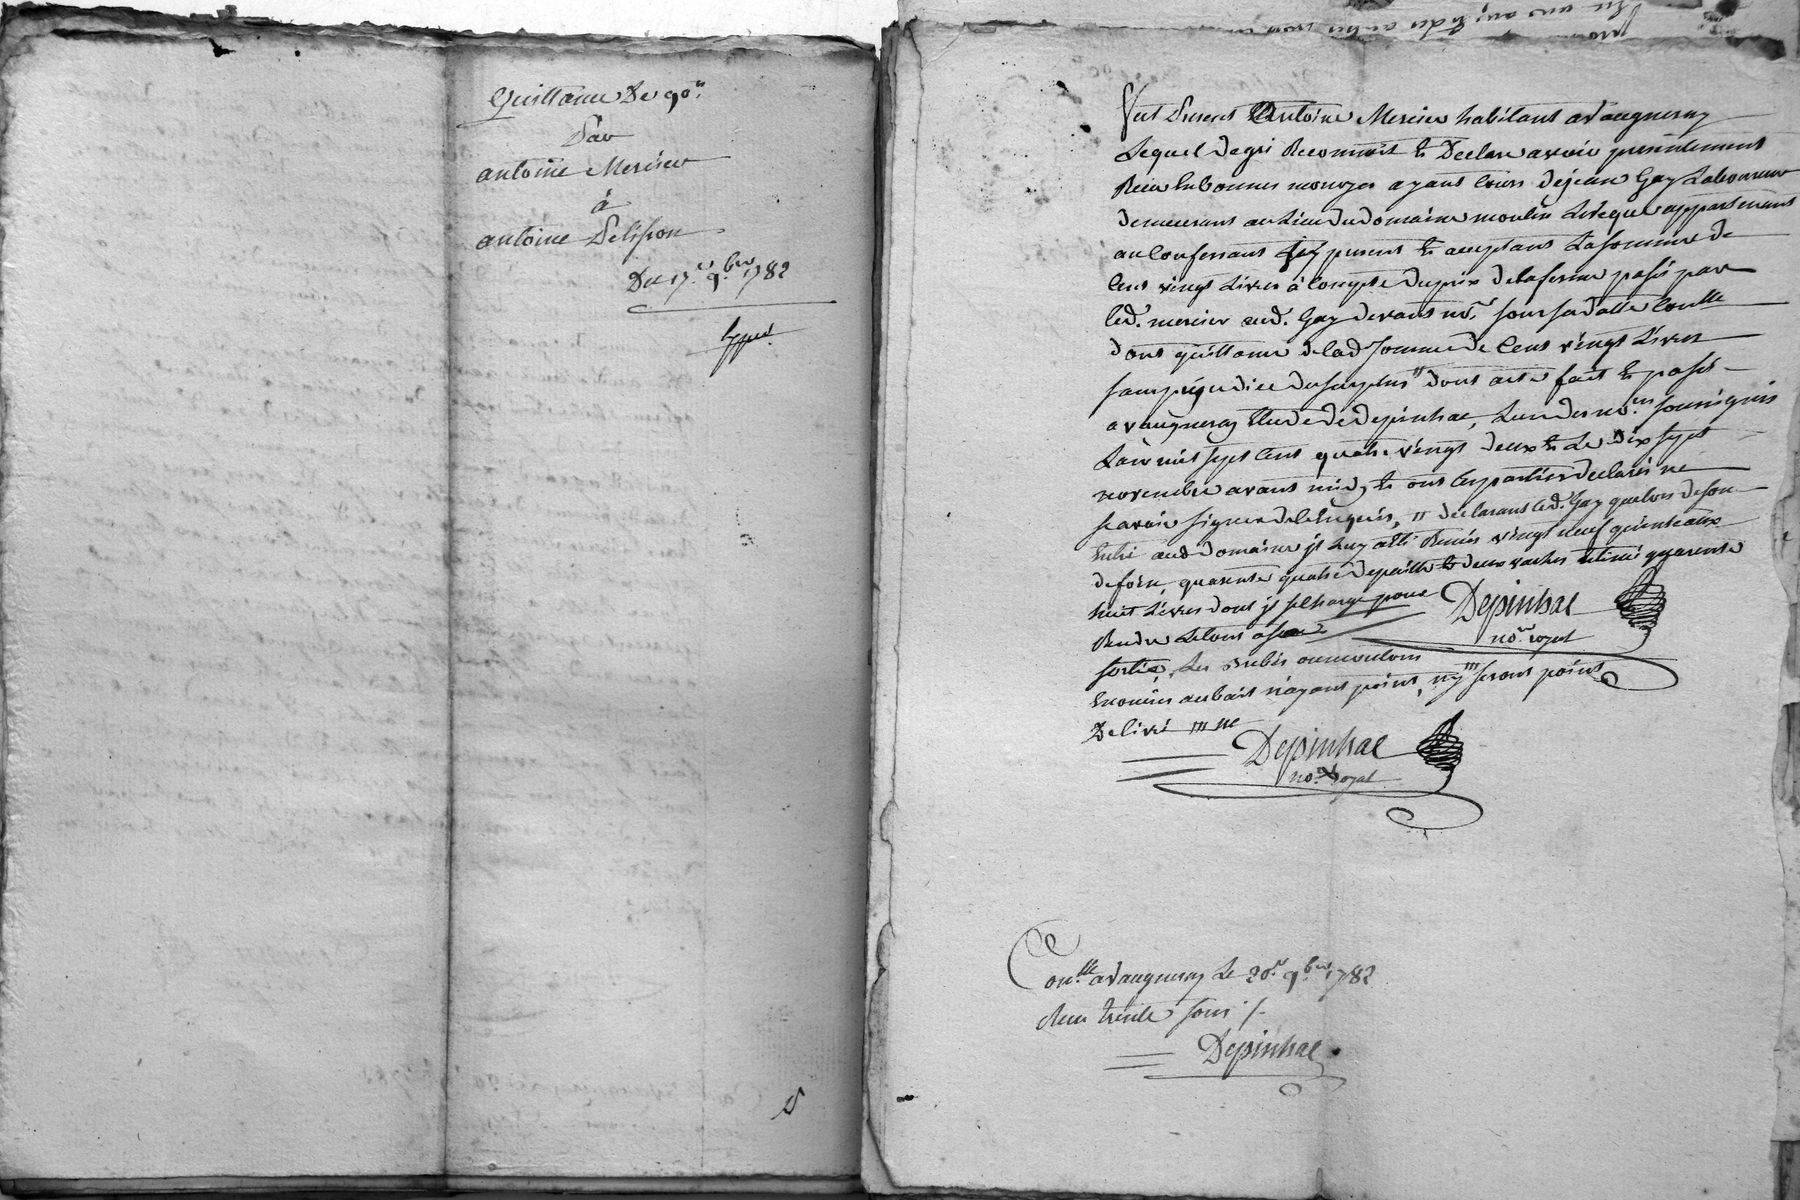 Quittance De 90#
Par
antoine Mercier
à
antoine Pelisson
Du 17e 9bre 1782
Expé.
Fut Present Antoine Mercier habitant a Vaugneray
Lequel degré Reconnoit et Declare avoir presentement
Receu En bonnes monoyes ayant Cours de jean Gay Laboureur
demeurant au Lieu du domaine moulin Levêque appartenant
au Confessant Gay present et acceptant La somme de
Cent vingt Livres à Compte du prix de la ferme passé par
led. mercier aud. Gay devant nore. sous sa datte Contlle
dont quittance de lad. somme de Cent vingt Livres
sans préjudice du surplus dont acte fait et passé
a vaugneray Etude de Depinhac, L'un des nores soussignés
L'an mil sept Cent quatre vingt deux et Le dix sept
novembre avant midy, et ont Les parties declaré ne
scavoir signer de ce Enquis, declarant led. Gay que lors de son
Entré aud. domaine il Luy a été Remis vingt neuf quinteaux
de foin, quarante quatre de paille et deux vaches Estimé quarante
huit Livres dont il se charge pour
Rendre Le tout a sa
sortie, Les
Enoncés au bail n'ayant point, n'y seront point
Delivré
Depinhac
nore. royal
Depinhac
nore. royal
Conlle a Vaugneray Le 20e 9bre 1782
Receu trente sous /.
Depinhac